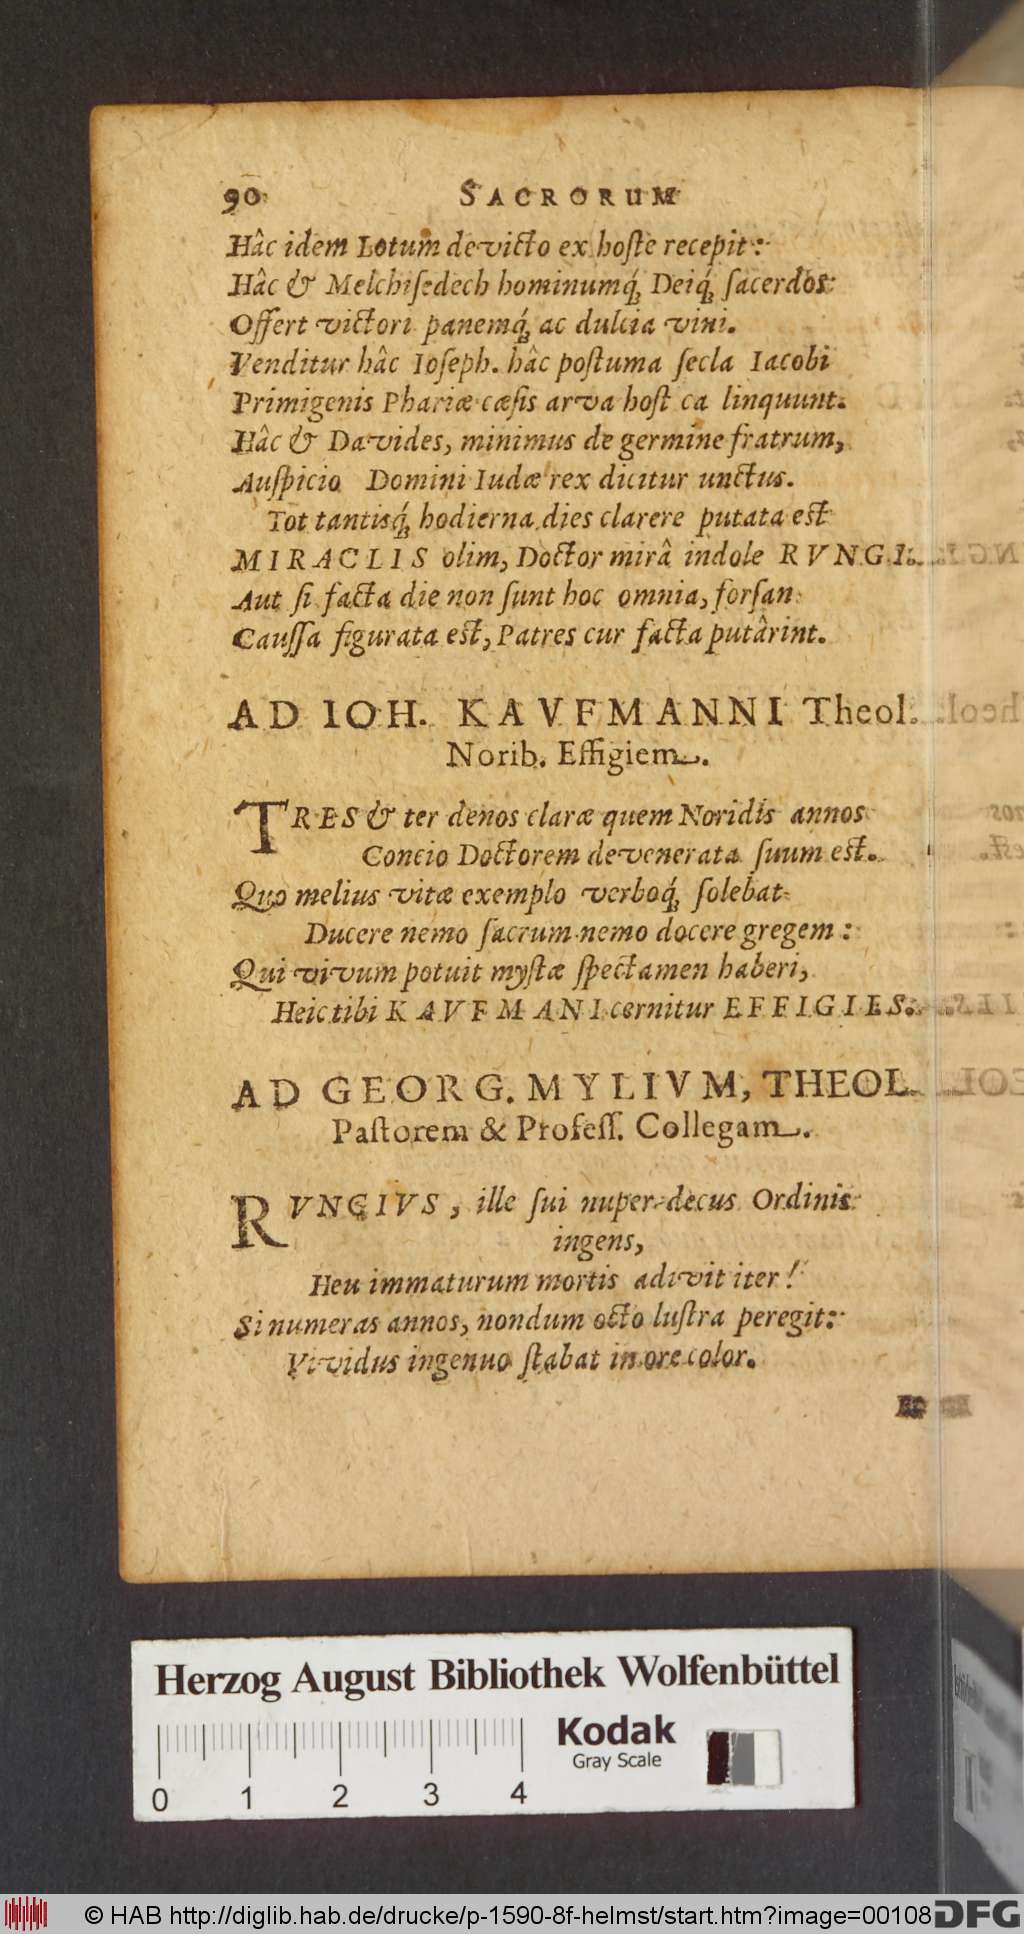 90 SACRORUM
Hâc idem Lotum devicto ex hoſte recepit:
Hâc & Melchiſedech hominumq́; Deiq́; ſacerdos
Offert victori panemq́; ac dulcia vini.
Venditur hâc Ioſeph. hâc poſtuma ſecla Iacobi
Primigenis Phariæ cæſis arva hoſt ca linquunt.
Hâc & Davides, minimus de germine fratrum,
Auſpicio Domini Iudæ rex dicitur unctus.
Tot tantisq́; hodierna dies clarere putata eſt
MIRACLIS olim, Doctor mirâ indole RVNGI.
Aut ſi facta die non ſunt hoc omnia, forſan
Cauſſa figurata eſt, Patres cur facta putârint.
AD IOH. KAVFMANNI Theol.
Norib. Effigiem.
TRES & ter denos claræ quem Noridis annos
Concio Doctorem devenerata ſuum eſt.
Quo melius vitæ exemplo verboq́; ſolebat
Ducere nemo ſacrum nemo docere gregem:
Qui vivum potuit myſtæ ſpectamen haberi,
Heic tibi KAVFMANI cernitur EFFIGIES.
AD GEORG. MYLIVM, THEOL.
Paſtorem & Profeſſ. Collegam.
RVNGIVS, ille ſui nuper decus Ordinis
ingens,
Heu immaturum mortis adivit iter!
Si numeras annos, nondum octo luſtra peregit:
Vividus ingenuo ſtabat in ore color.
Herzog August Bibliothek Wolfenbüttel
Kodak
Gray Scale
0 1 2 3 4
© HAB http://diglib.hab.de/drucke/p-1590-8f-helmst/start.htm?image=00108
DFG